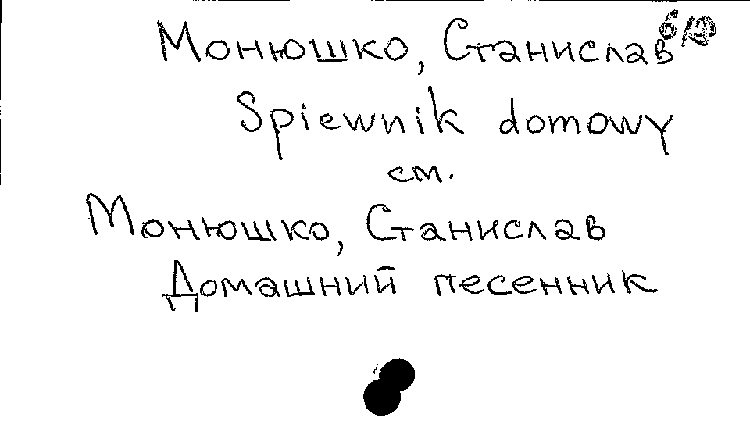 Монюшко, Станислав
Spiewnik domowy
см.
Монюшко, Станислав
Домашний песенник